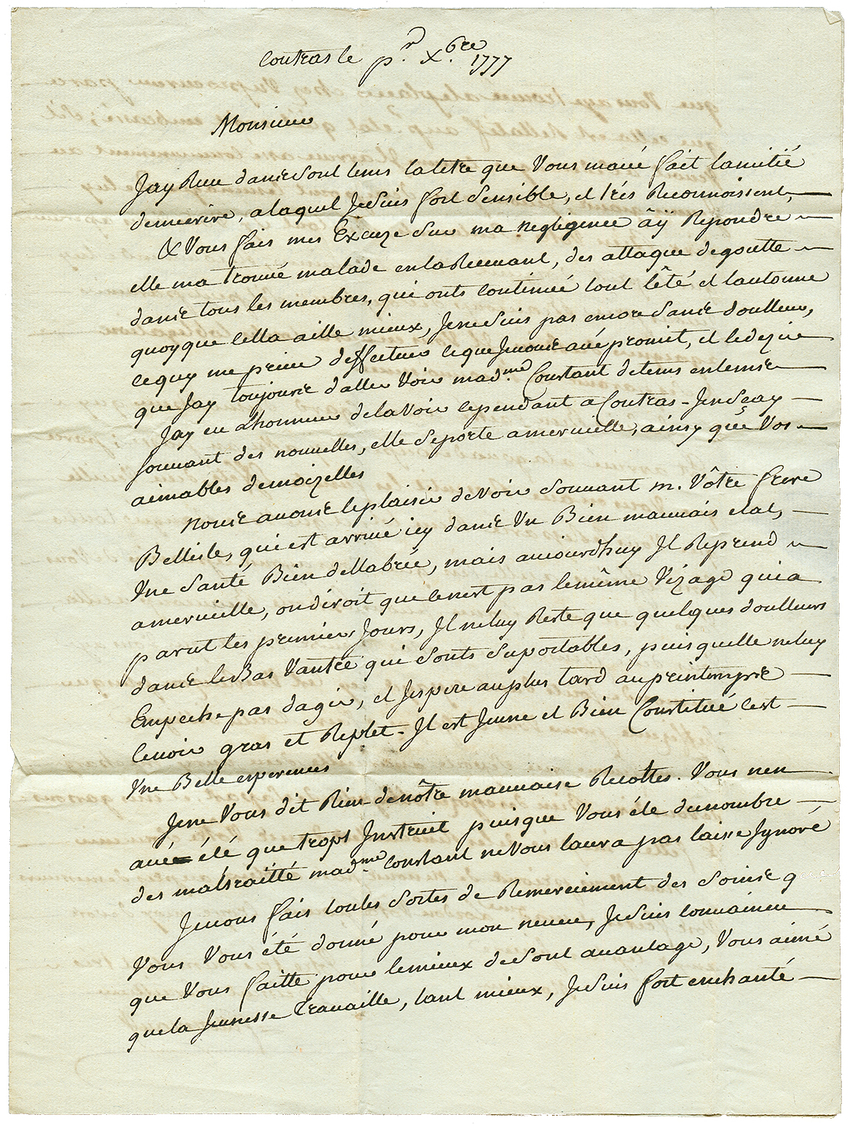 Coutras le pr. Xbre 1777
Monsieur
Jay Recu dans sont tems la letre que Vous mavé fait lamitié
demecrire, alaquel Je suis fort Sensible, et trés Reconnoissent,
& Vous fais mes Excuze Sur ma negligence ây Repondre
elle ma trouvé malade en la Recevant, des attaque degoutte
dans tous les membres, qui onts continué tout lêté et lautonne
quoyque cella aille mieux, Jene Suis pas encore Sans doulleur,
ce quy me prive deffectuer ce que Jevous avé promit, et le dezir
que Jay toujours daller Voir madme. Constant detems entems
Jay eu Lhonneur de la Voir cependant a Coutras - Jen Scay
souvant des nouvelles, elle Seporte amerveille, ainsy que Vos
aimables demoizelles
Nous avons le plaisir de Voir Souvant m. Vôtre frere
Bellisle, qui est arrivé icy dans Un Bien mauvais etat,
Une Santé Bien dellabrée, mais aujourdhuy Il Reprend
amerveille, on diroit que ce nest pas le même Vizage qui a
parut les premier Jours, Il ne luy Reste que quelques doulleurs
dans le Bas Vantre qui Sonts Suportables, puis quelle ne luy
Empeche pas dagir, et Jespere au plus tard au printemps
le voir gras et Replet - Il est Jeune et Bien Constitué cest
Une Belle esperences
Jene Vous dit Rien de nôtre mauvaise Recoltes. Vous nen
avé été que trops Instruit puisque Vous éte du nombre
des maltraitté madme Constant ne Vous laura pas laissé Jgnoré
Jevous fais toutes Sortes de Remerciement des Soins q
Vous Vous éte donné pour mon neveu, Je Suis convaincu
que Vous faitte pour le mieux de Sont avantage, Vous aimé
que la Jeunesse Travaille, tant mieux, Je Suis fort enchanté